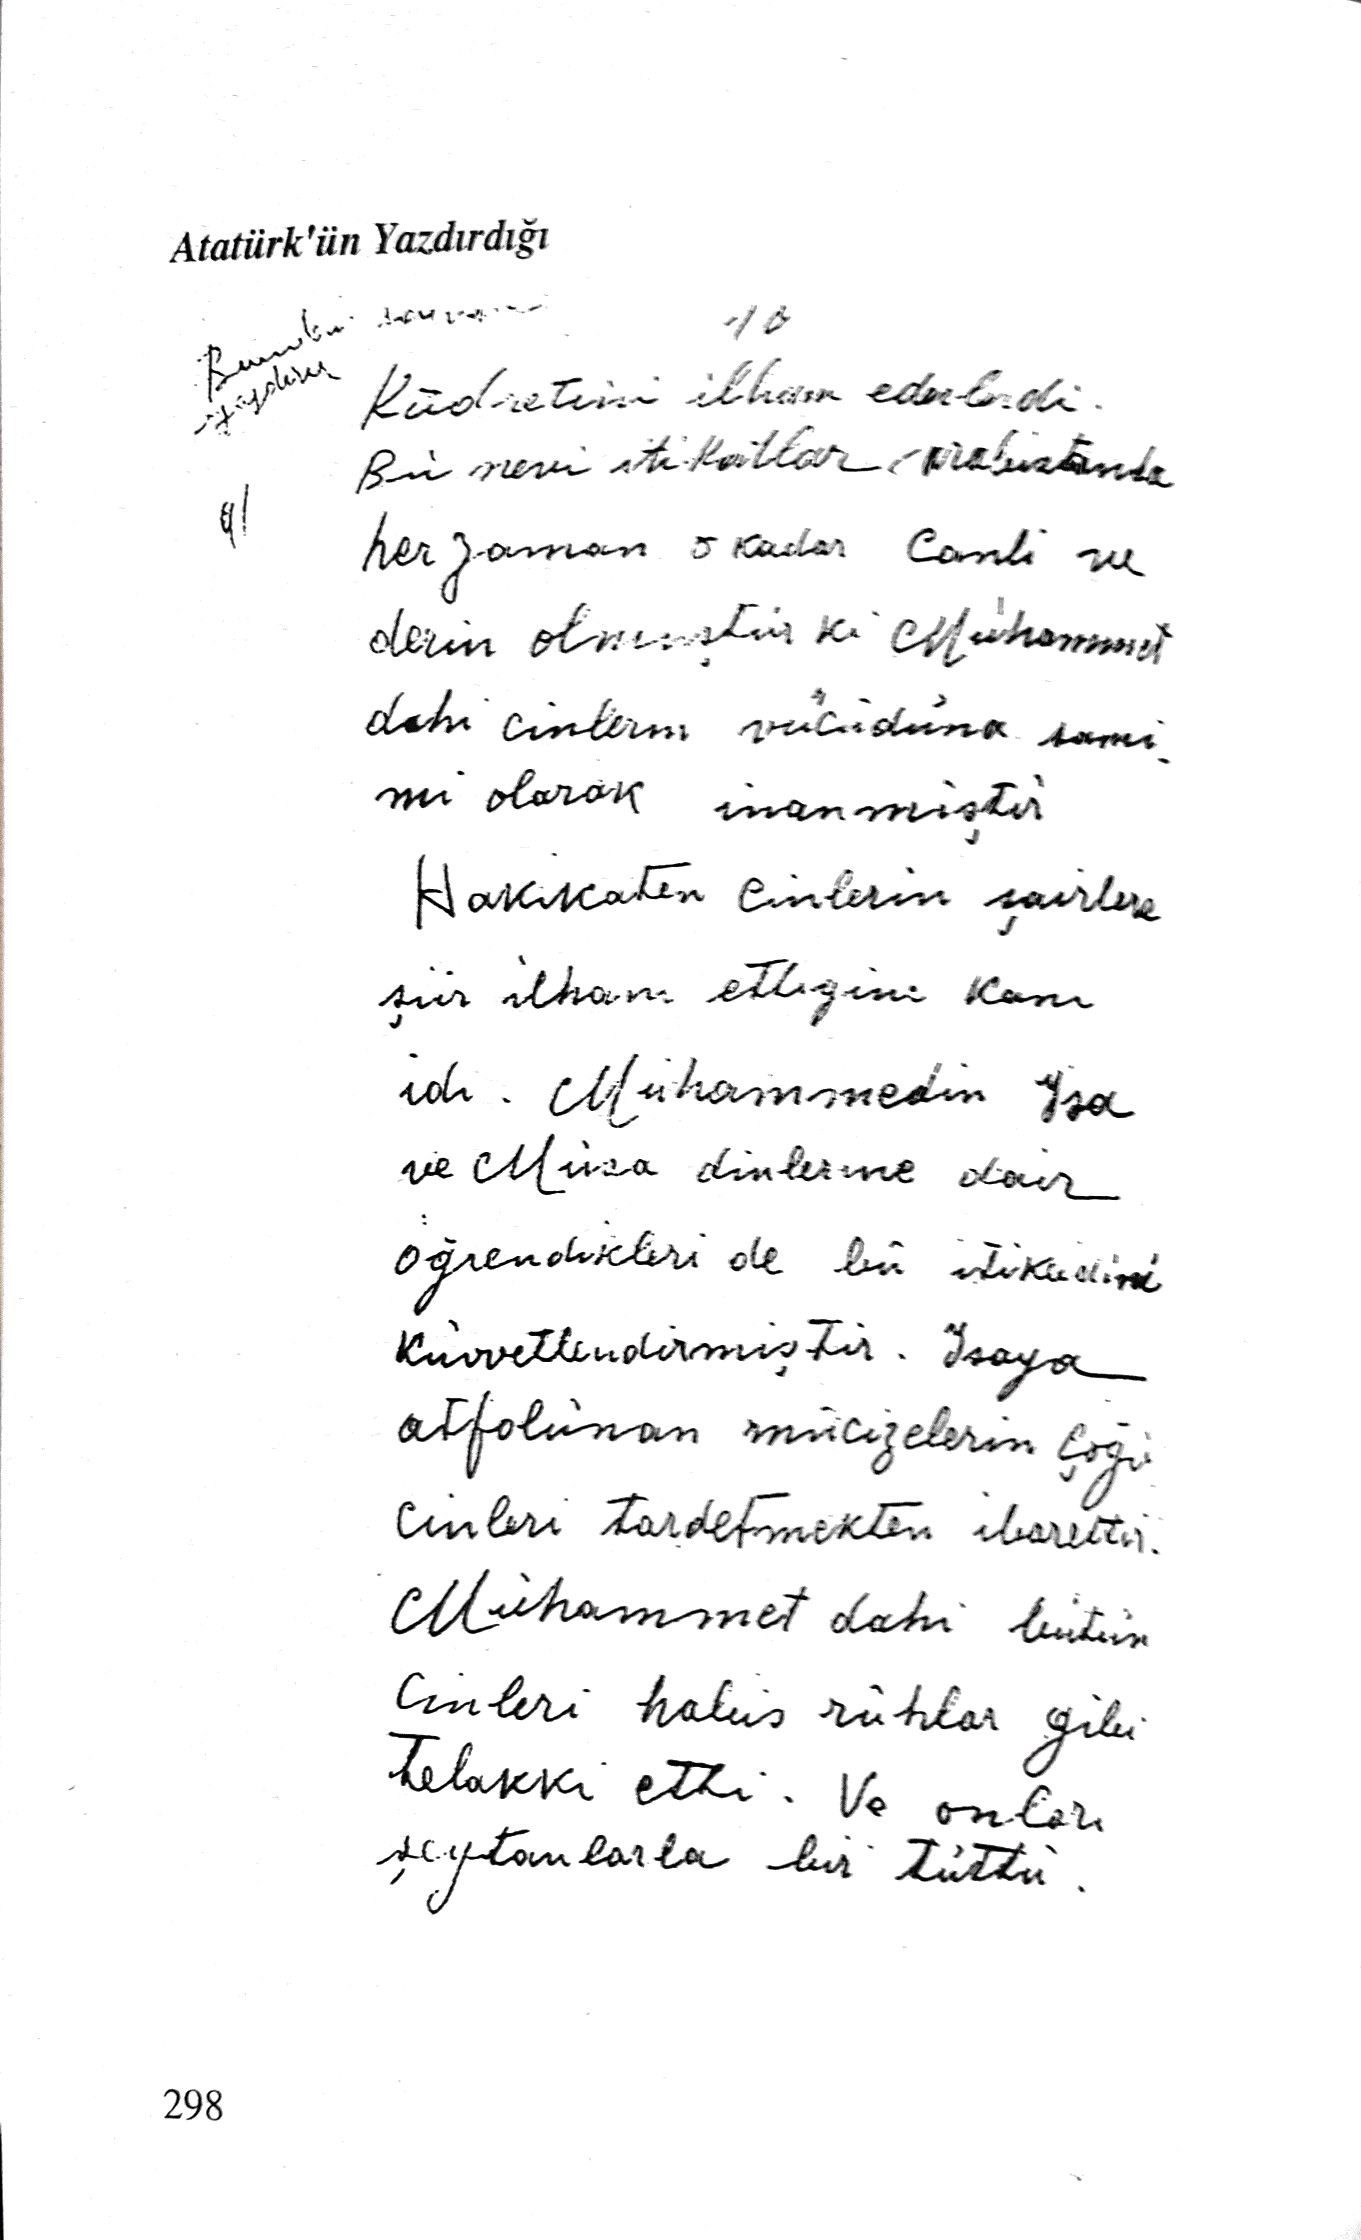 Atatürk'ün Yazdırdığı
10
Küdretini ilham ederlerdi.
Bü nevi itikatlar, Arabistanda
her zaman o kadar Canli ve
derin olmuştür ki Mühammet
dahi cinlerin vücüdüna sami-
mi olarak inanmiştir
Hakikaten Cinlerin şairlere
şiir ilham ettigine Kani
idi. Mühammedin Isa
ve Müsa dinlerine dair
öğrendikleri de bü itikadini
Küvvetlendirmiştir. Isaya
atfolünan mücizelerin Çoğü
Cinleri tardetmekten ibarettir.
Mühammet dahi bütün
Cinleri habis rühlar gibi
telakki etti. Ve onları
şeytanlarla bir tüttü.
298